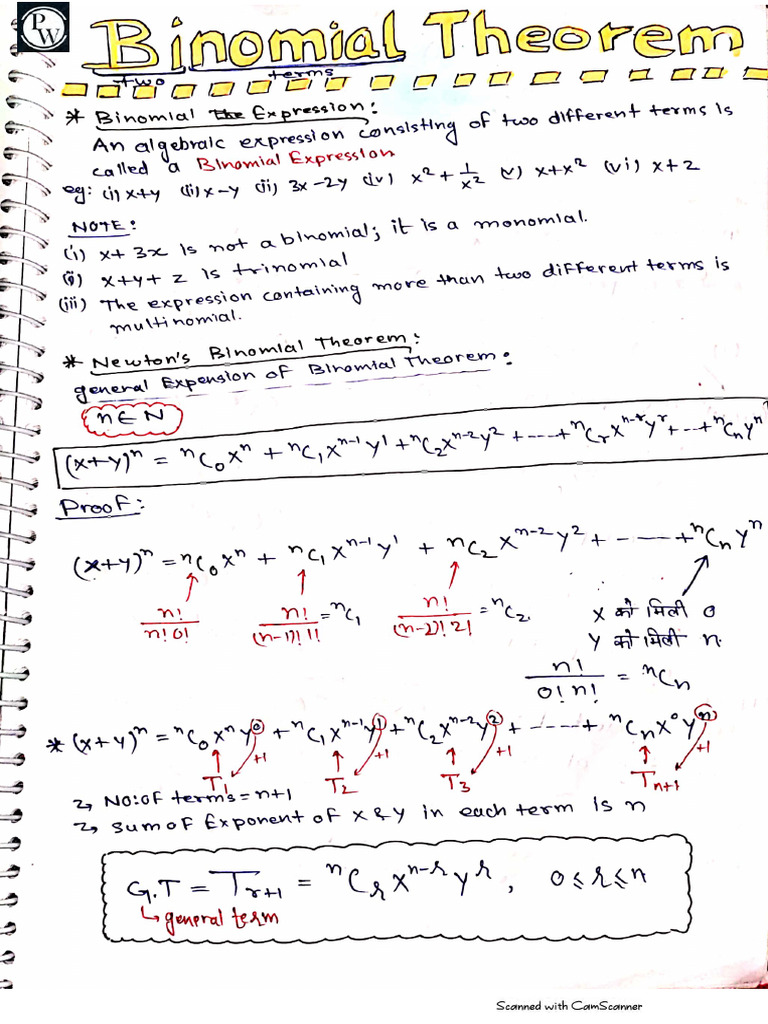 PW
Binomial Theorem
two terms
* Binomial the Expression:
An algebraic expression consisting of two different terms is
called a Binomial Expression
eg: (i) x+y (ii) x-y (ii) 3x-2y (iv) x² + 1/x² (v) x+x² (vi) x+2
NOTE:
(i) x+ 3x is not a binomial; it is a monomial.
(ii) x+y+ z is trinomial
(iii) The expression containing more than two different terms is
multinomial.
* Newton's Binomial Theorem:
general Expension of Binomial Theorem:
n∈N
(x+y)ⁿ = ⁿC₀xⁿ + ⁿC₁xⁿ⁻¹y¹ + ⁿC₂xⁿ⁻²y² + ---- + ⁿCᵣxⁿ⁻ʳyʳ + --+ ⁿCₙyⁿ
Proof:
(x+y)ⁿ = ⁿC₀xⁿ + ⁿC₁xⁿ⁻¹y¹ + ⁿC₂xⁿ⁻²y² + - ---- + ⁿCₙyⁿ
n!/n!0! n!/(n-1)!1! = ⁿC₁ n!/(n-2)!2! = ⁿC₂ x को मिली 0
y को मिली n.
n!/0!n! = ⁿCₙ
* (x+y)ⁿ = ⁿC₀xⁿy⁰ + ⁿC₁xⁿ⁻¹y¹ + ⁿC₂xⁿ⁻²y² + ----- + ⁿCₙx⁰yⁿ
+1 +1 +1 +1
T₁ T₂ T₃ Tₙ₊₁
→ NO: OF terms = n+1
→ sum of Exponent of x & y in each term is n
G.T = Tᵣ₊₁ = ⁿCᵣxⁿ⁻ʳyʳ, 0⩽r⩽n
↳ general term
Scanned with CamScanner